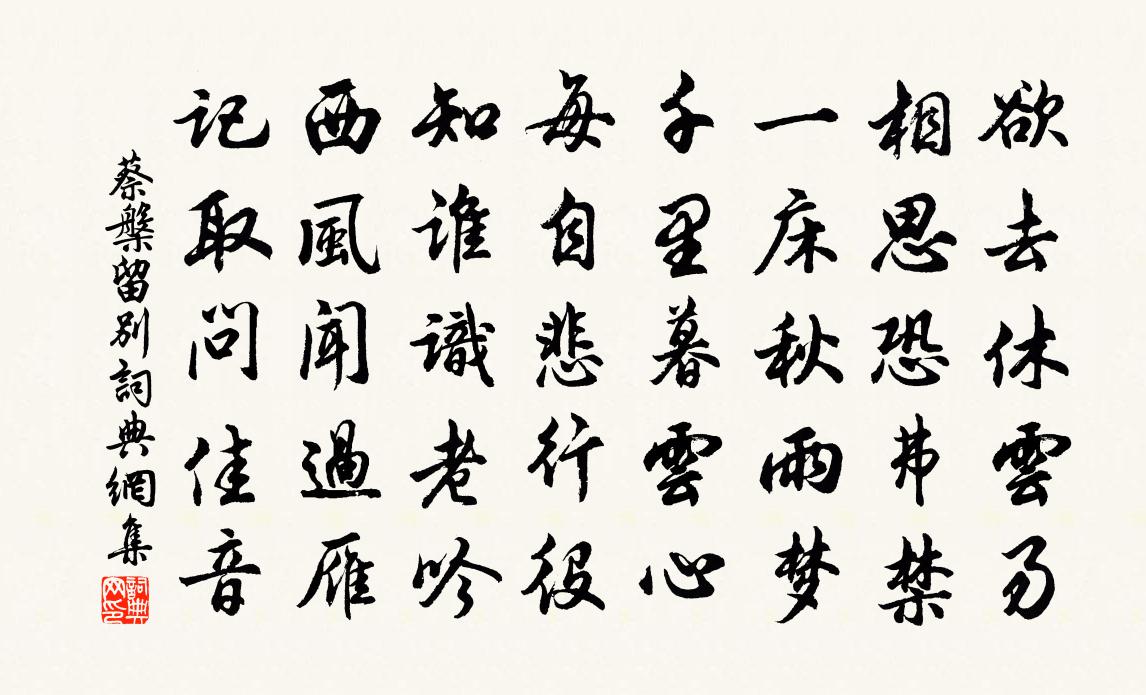 欲去休雲易
相思恐弗禁
一床秋雨梦
千里暮雲心
每自悲行役
知誰識老吟
西風聞過雁
記取問佳音
蔡槃留別詞典網集
詞典网印